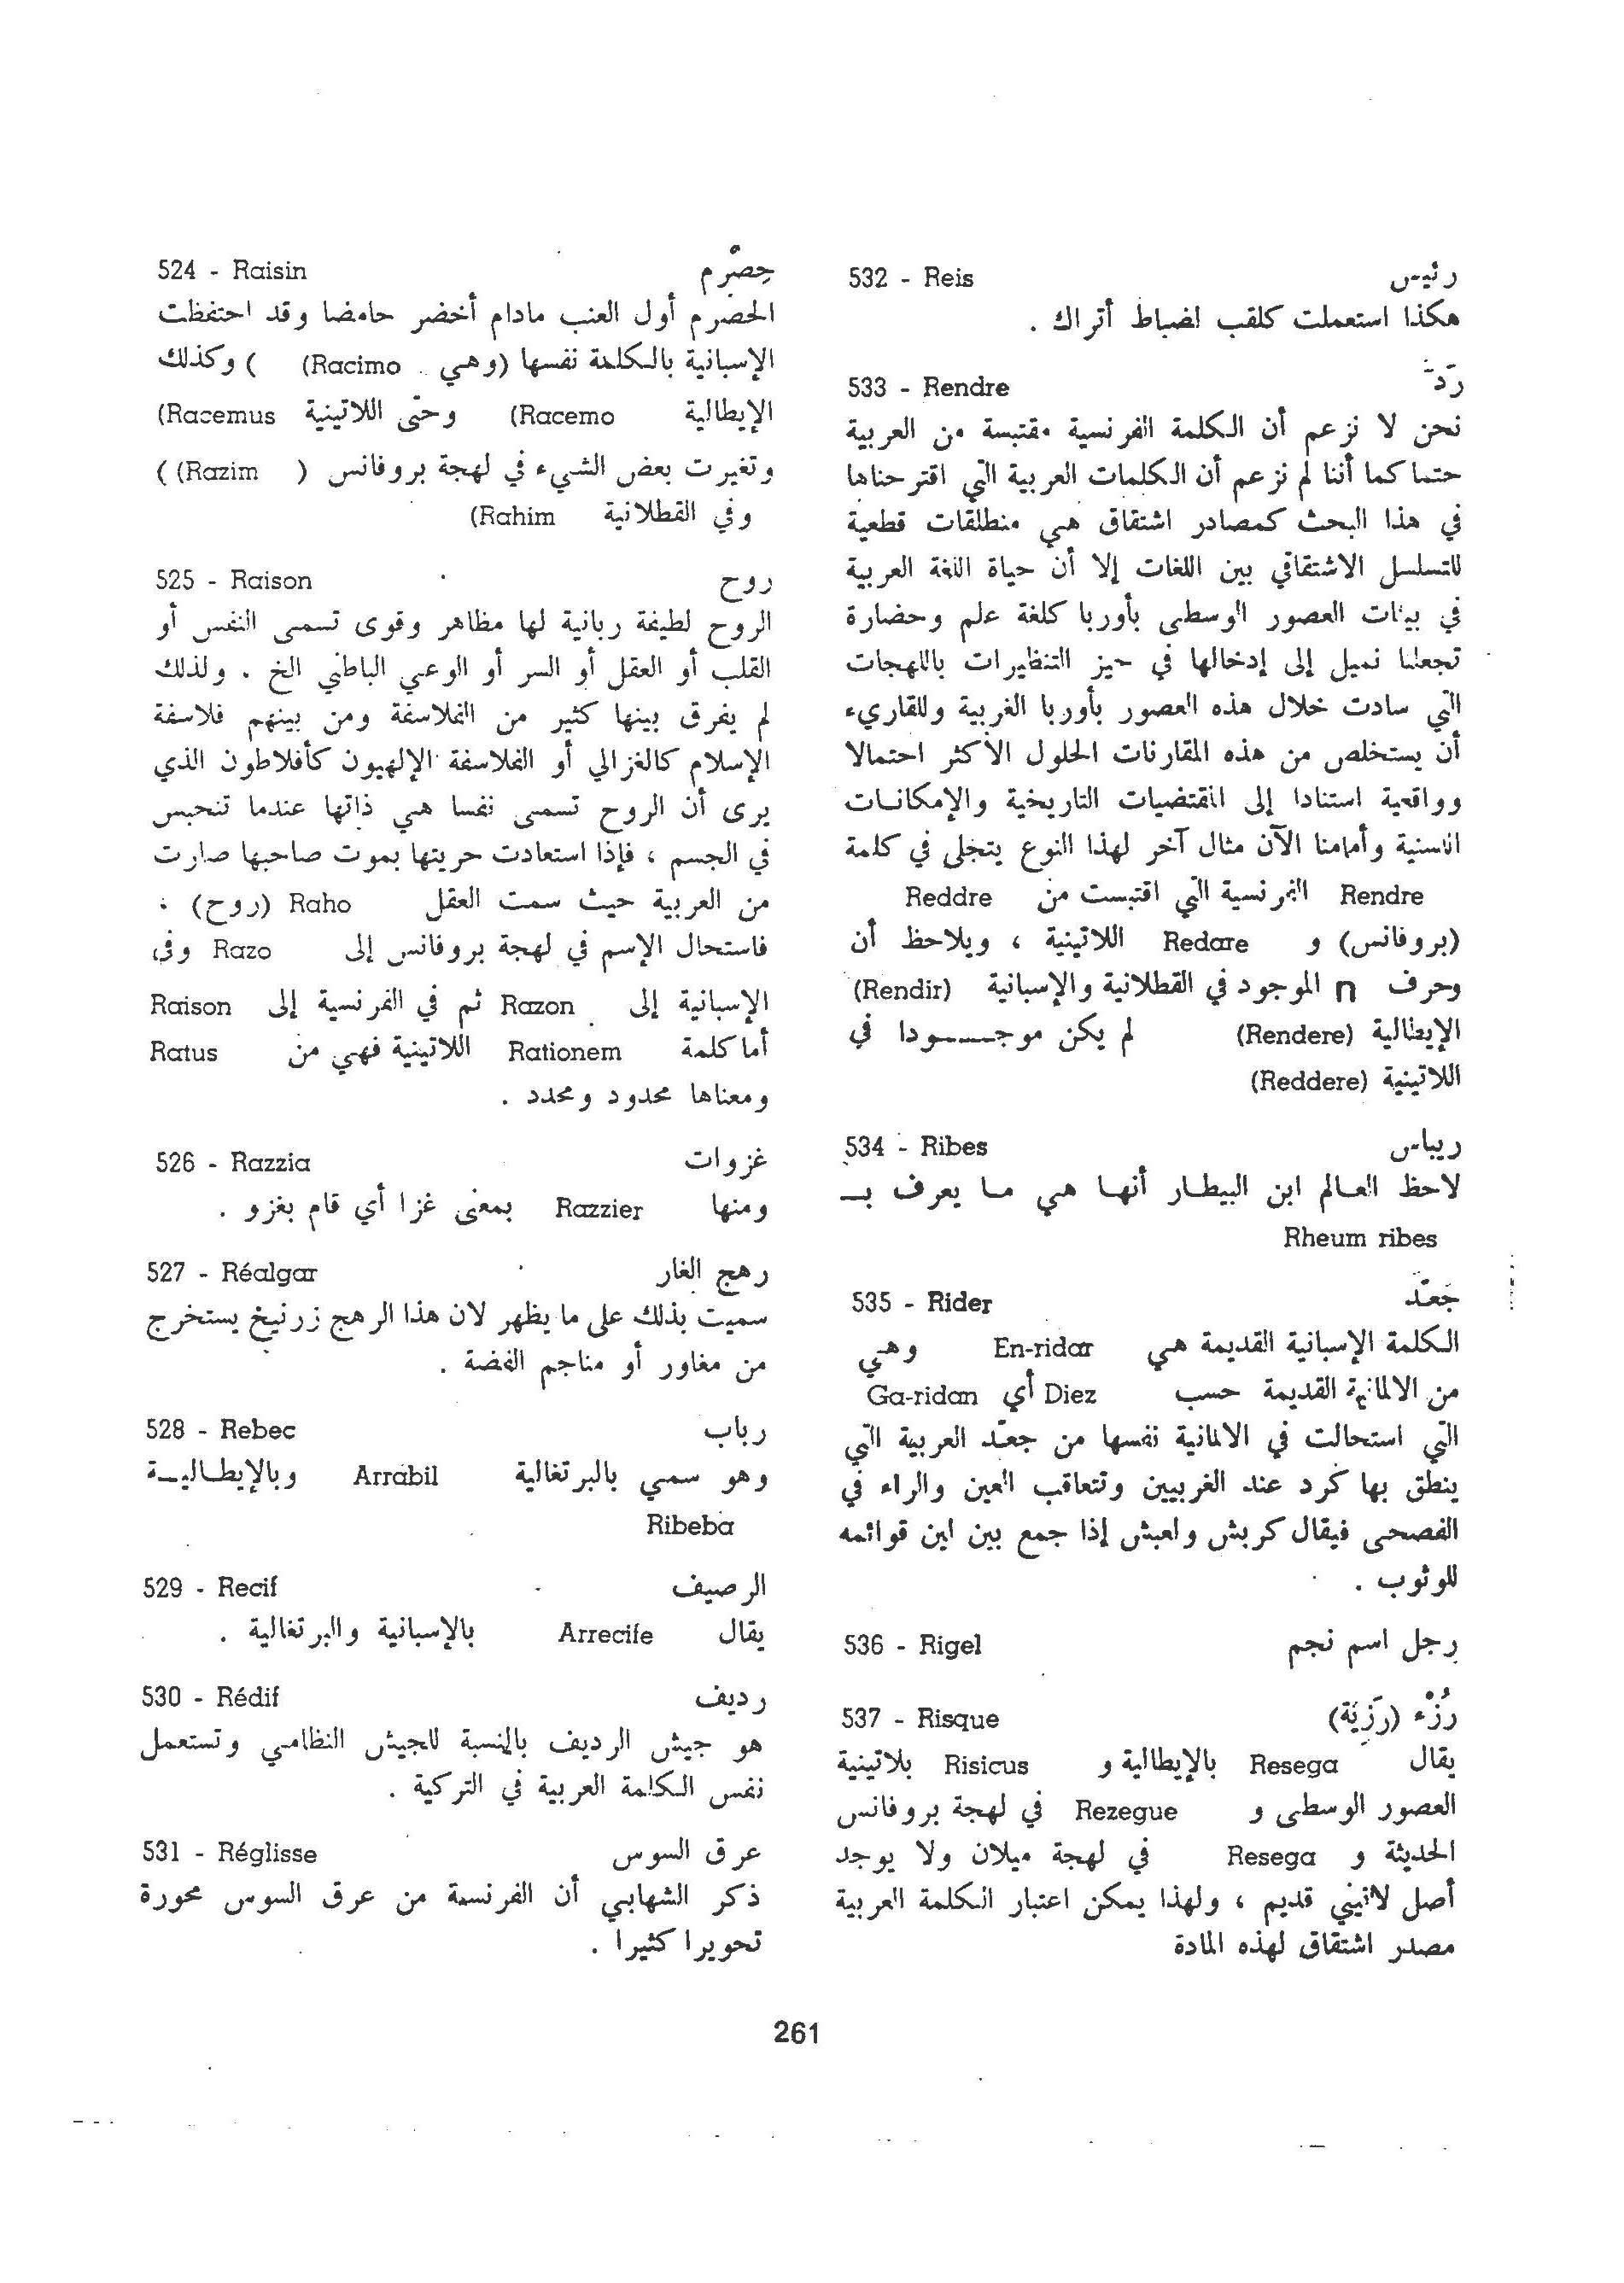 524 - Raisin حِصْرِم
الحصرم أول العنب مادام أخضر حامضا وقد احتفظت
الإسبانية بالكلمة نفسها (وهي Racimo) ) وكذلك
الإيطالية Racemo) وحتى اللاتينية Racemus)
وتغيرت بعض الشيء في لهجة بروفانس ( Razim) )
وفي القطلانية Rahim)
525 - Raison روح
الروح لطيفة ربانية لها مظاهر وقوى تسمى النفس أو
القلب أو العقل أو السر أو الوعي الباطني الخ . ولذلك
لم يفرق بينها كثير من الفلاسفة ومن بينهم فلاسفة
الإسلام كالغزالي أو الفلاسفة الإلهيون كأفلاطون الذي
يرى أن الروح تسمى نفسا هي ذاتها عندما تنحبس
في الجسم ، فإذا استعادت حريتها بموت صاحبها صارت
من العربية حيث سمت العقل Raho (روح) .
فاستحال الإسم في لهجة بروفانس إلى Razo وفي
الإسبانية إلى Razon ثم في الفرنسية إلى Raison
أما كلمة Rationem اللاتينية فهي من Ratus
ومعناها محدود ومحدد .
526 - Razzia غزوات
ومنها Razzier بمعنى غزا أي قام بغزو .
527 - Réalgar رهج الغار
سميت بذلك على ما يظهر لان هذا الرهج زرنيخ يستخرج
من مغاور أو مناجم الفضة .
528 - Rebec رباب
وهو سمي بالبرتغالية Arrabil وبالإيطاليـة
Ribeba
529 - Recif الرصيف
يقال Arrecife بالإسبانية والبرتغالية .
530 - Rédif رديف
هو جيش الرديف بالنسبة للجيش النظامي وتستعمل
نفس الكلمة العربية في التركية .
531 - Réglisse عرق السوس
ذكر الشهابي أن الفرنسية من عرق السوس محورة
تحويرا كثيرا .
532 - Reis رئيس
هكذا استعملت كلقب لضباط أتراك .
533 - Rendre رَدَّ
نحن لا نزعم أن الكلمة الفرنسية مقتبسة من العربية
حتما كما أننا لم نزعم أن الكلمات العربية التي اقترحناها
في هذا البحث كمصادر اشتقاق هي منطلقات قطعية
للتسلسل الاشتقاقي بين اللغات إلا أن حياة اللغة العربية
في بيئات العصور الوسطى بأوربا كلغة علم وحضارة
تجعلنا نميل إلى إدخالها في حيز التنظيرات باللهجات
التي سادت خلال هذه العصور بأوربا الغربية وللقاريء
أن يستخلص من هذه المقارنات الحلول الأكثر احتمالا
وواقعية استنادا إلى المقتضيات التاريخية والإمكانات
اللسنية وأمامنا الآن مثال آخر لهذا النوع يتجلى في كلمة
Rendre الفرنسية التي اقتبست من Reddre
(بروفانس) و Redare اللاتينية ، ويلاحظ أن
وحرف n الموجود في القطلانية والإسبانية (Rendir)
الإيطالية (Rendere) لم يكن موجـــودا في
اللاتينية (Reddere)
534 - Ribes ريباس
لاحظ العالم ابن البيطار أنها هي ما يعرف بـ
Rheum ribes
535 - Rider جَعَّد
الكلمة الإسبانية القديمة هي En-ridar وهي
من الالمانية القديمة حسب Diez أي Ga-ridan
التي استحالت في الالمانية نفسها من جعّد العربية التي
ينطق بها كرد عند الغربيين وتتعاقب العين والراء في
الفصحى فيقال كربش ولعبش إذا جمع بين لبن قوائمه
للوثوب .
536 - Rigel رجل اسم نجم
537 - Risque رُزْء (رَزِيَّة)
يقال Resega بالإيطالية و Risicus بلاتينية
العصور الوسطى و Rezegue في لهجة بروفانس
الحديثة و Resega في لهجة ميلان ولا يوجد
أصل لاتيني قديم ، ولهذا يمكن اعتبار الكلمة العربية
مصدر اشتقاق لهذه المادة
261